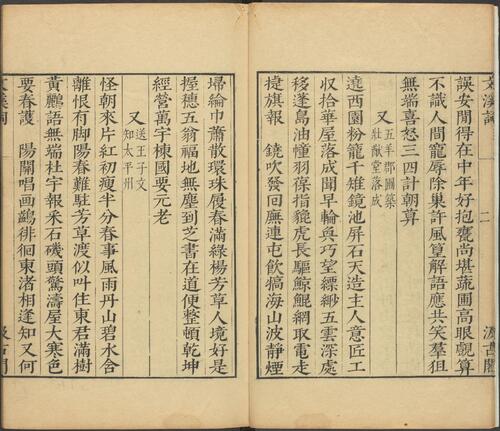 誤安閒得在中年好抱甕尚堪蔬圃高眼覷算
不識人間寵辱除巢許風篁解語應共笑羣狙
無端喜怒三四計朝算
又 五羊郡圃築壯猷堂落成
遶西園粉籠千雉鏡池屏石天造主人意匠工
收拾華屋落成閒早輪奐巧望縹緲五雲深處
移蓬島油幢羽葆指貔虎長驅鯨鯢網取電走
捷旗報 鐃吹發回廡連屯飲犒海山波靜煙
埽綸巾蕭散環珠履春滿綠楊芳草人境好是
握穗五翁福地無塵到芝書在道便整頓乾坤
經營萬宇棟國要元老
又 送王子文知太平州
怪朝來片紅初瘦半分春事風雨丹山碧水含
離恨有腳陽春難駐芳草渡似叫住東君滿樹
黃鸝語無端杜宇報采石磯頭驚濤屋大寒色
要春護 陽關唱画鷁徘徊東渚相逢知又何
文溪詞
二
汲古閣